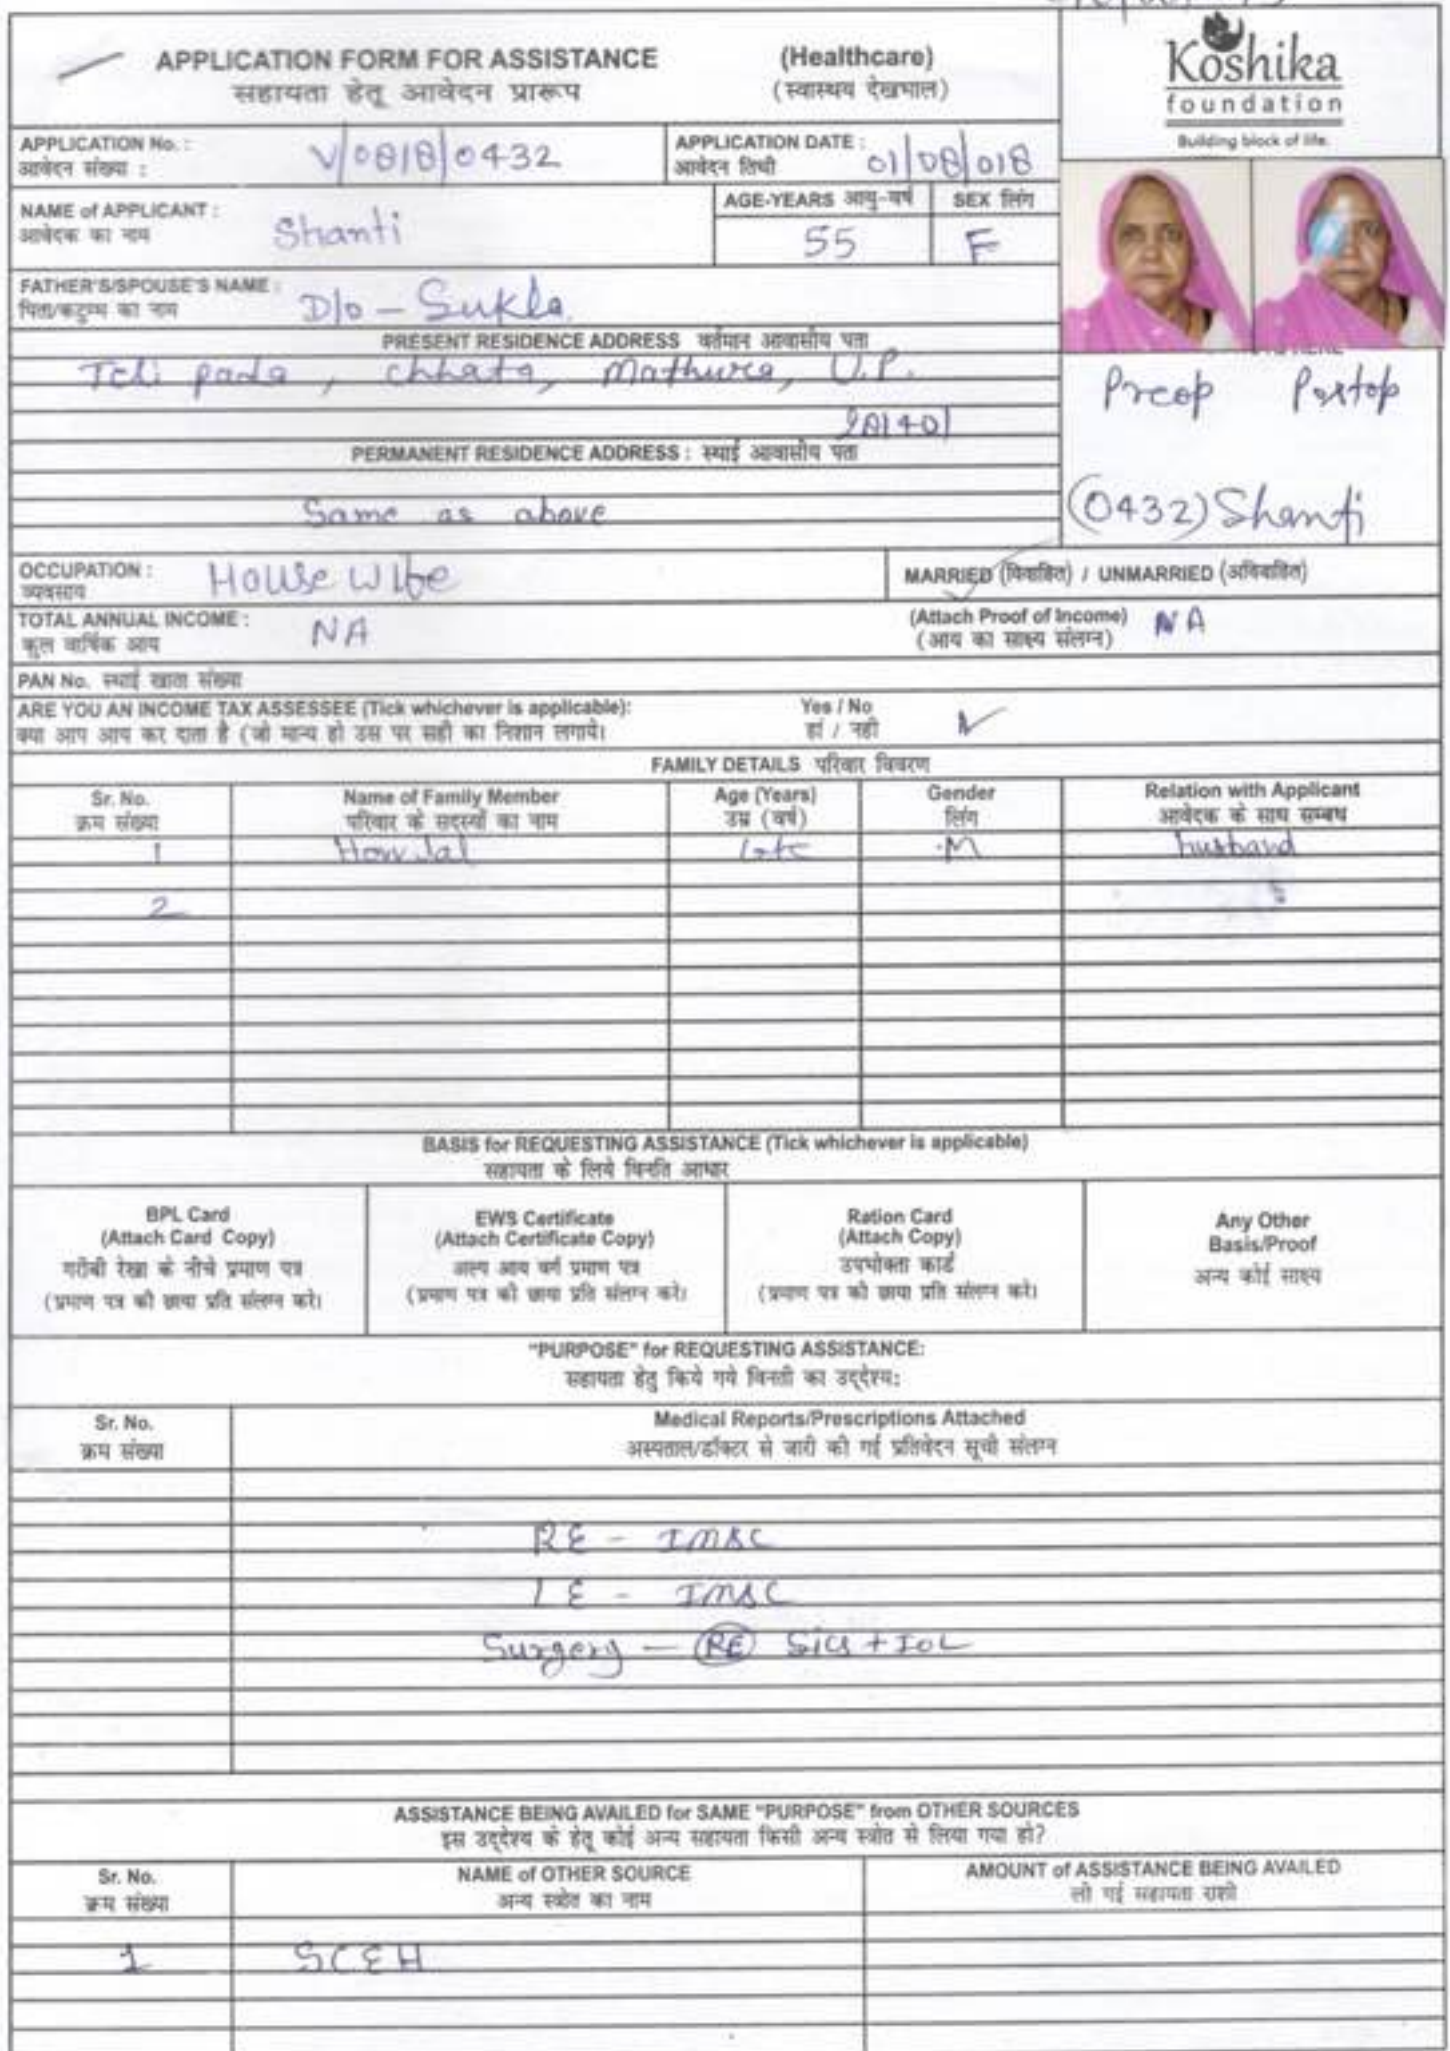 APPLICATION FORM FOR ASSISTANCE (Healthcare)
सहायता हेतू आवेदन प्रारूप (स्वास्थय देखभाल)
Koshika
foundation
Building block of life.
APPLICATION No. : V/0818/0432
आवेदन संख्या :
APPLICATION DATE : 01/08/018
आवेदन तिथी
NAME of APPLICANT : Shanti
आवेदक का नाम
AGE-YEARS आयु-वर्ष SEX लिंग
55 F
FATHER'S/SPOUSE'S NAME : D/o - Sukla
पिता/कटुम्ब का नाम
PRESENT RESIDENCE ADDRESS वर्तमान आवासीय पता
Teli pada, chhata, Mathura, U.P.
281401
Preop Postop
PERMANENT RESIDENCE ADDRESS : स्थाई आवासीय पता
Same as above
(0432) Shanti
OCCUPATION : House wife
व्यवसाय
MARRIED (विवाहित) / UNMARRIED (अविवाहित)
TOTAL ANNUAL INCOME : NA
कुल वार्षिक आय
(Attach Proof of Income) NA
(आय का साक्ष्य संलग्न)
PAN No. स्थाई खाता संख्या
ARE YOU AN INCOME TAX ASSESSEE (Tick whichever is applicable): Yes / No
क्या आप आय कर दाता है (जो मान्य हो उस पर सही का निशान लगाये। हां / नही
FAMILY DETAILS परिवार विवरण
Sr. No. Name of Family Member Age (Years) Gender Relation with Applicant
क्रम संख्या परिवार के सदस्यों का नाम उम्र (वर्ष) लिंग आवेदक के साथ सम्बध
1 M husband
2
BASIS for REQUESTING ASSISTANCE (Tick whichever is applicable)
सहायता के लिये विनति आधार
BPL Card
(Attach Card Copy)
गरीबी रेखा के नीचे प्रमाण पत्र
(प्रमाण पत्र की छाया प्रति संलग्न करे।
EWS Certificate
(Attach Certificate Copy)
अल्प आय वर्ग प्रमाण पत्र
(प्रमाण पत्र की छाया प्रति संलग्न करे।
Ration Card
(Attach Copy)
उपभोक्ता कार्ड
(प्रमाण पत्र की छाया प्रति संलग्न करे।
Any Other
Basis/Proof
अन्य कोई साक्ष्य
"PURPOSE" for REQUESTING ASSISTANCE:
सहायता हेतु किये गये विनती का उद्देश्य:
Sr. No. Medical Reports/Prescriptions Attached
क्रम संख्या अस्पताल/डॉक्टर से जारी की गई प्रतिवेदन सूची संलग्न
RE - IMSC
LE - IMSC
Surgery - RE SICS + IOL
ASSISTANCE BEING AVAILED for SAME "PURPOSE" from OTHER SOURCES
इस उद्देश्य के हेतू कोई अन्य सहायता किसी अन्य स्त्रोत से लिया गया हो?
Sr. No. NAME of OTHER SOURCE AMOUNT of ASSISTANCE BEING AVAILED
क्रम संख्या अन्य स्त्रोत का नाम ली गई सहायता राशी
1 SCEH